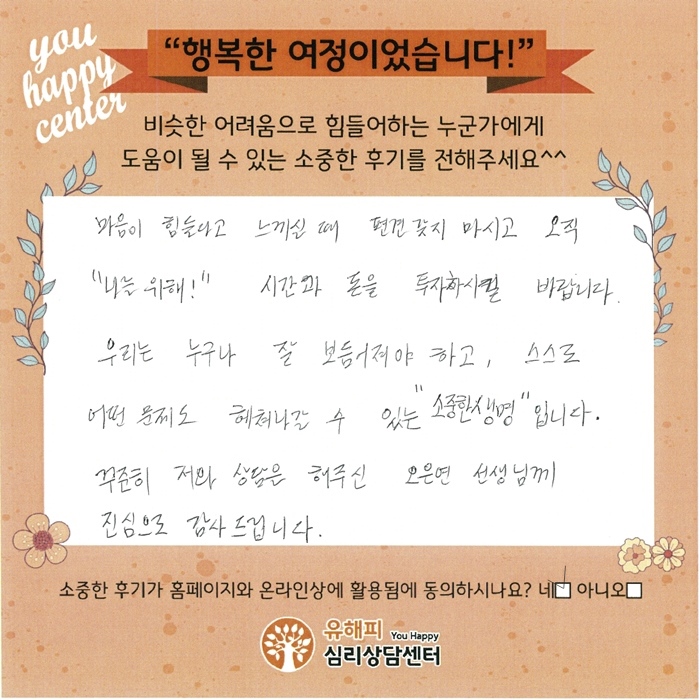 you
happy
center
“행복한 여정이었습니다!”
비슷한 어려움으로 힘들어하는 누군가에게
도움이 될 수 있는 소중한 후기를 전해주세요^^
마음이 힘들다고 느끼실 때 편견갖지 마시고 오직
"나를 위해!" 시간과 돈을 투자하시길 바랍니다.
우리는 누구나 잘 보듬어져야 하고, 스스로
어떤 문제도 헤쳐나갈 수 있는 "소중한생명"입니다.
꾸준히 저와 상담은 해주신 오은연 선생님께
진심으로 감사드립니다.
소중한 후기가 홈페이지와 온라인상에 활용됨에 동의하시나요? 네☑ 아니오☐
유해피 You Happy
심리상담센터